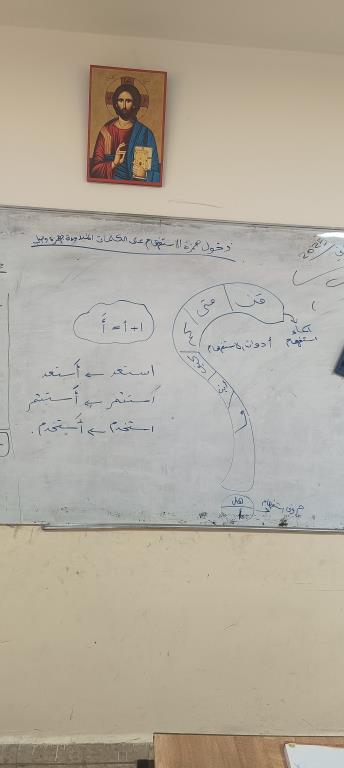 دخول همزة الاستفهام على الكلمات المبدوءة بهمزة وصل
أ + ا = أ
استعد ← أَستعد
استثمر ← أَستثمر
استخدم ← أَستخدم.
أدوات الاستفهام
أسماء استفهام
مَن
متى
كم
أين
ما
هل
أ
حروف استفهام